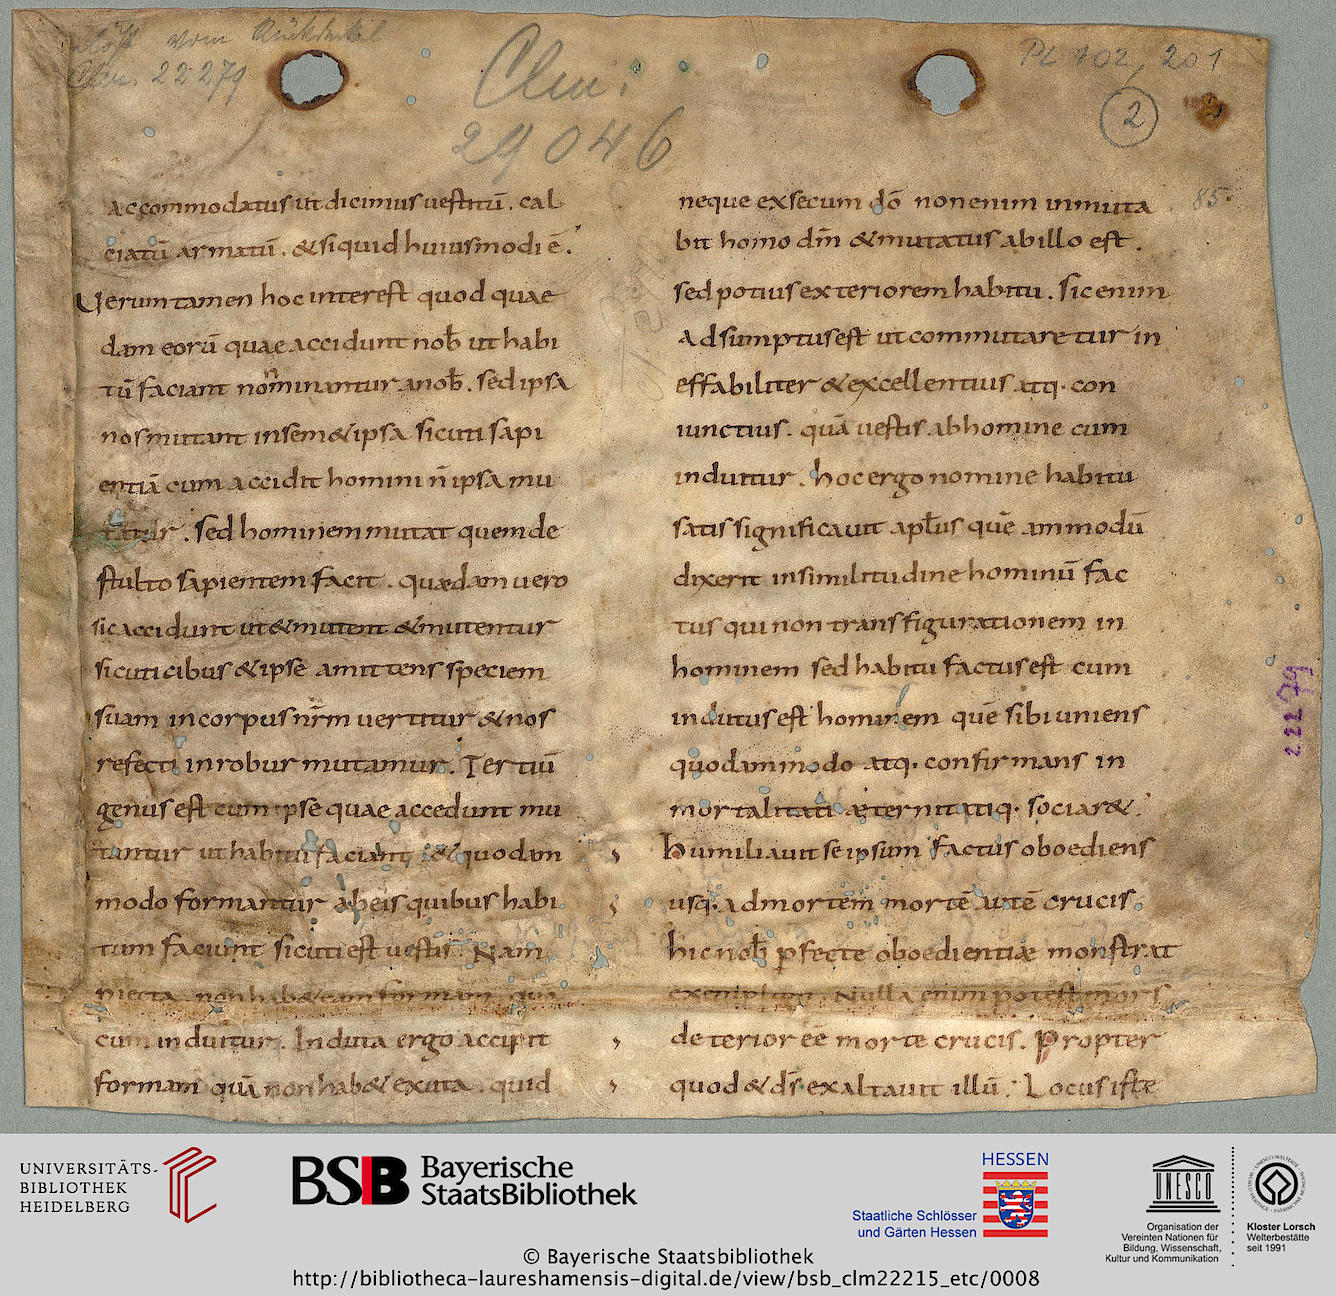 vom Rückdeckel
Clm. 22279
Clm:
29046
PL 102, 201
2
85.
accommodatus ut dicimus uestitū. cal
ciatū armatū. & si quid huiusmodi ē.
Uerumtamen hoc interest quod quae
dam eorū quae accidunt nob̄ ut habi
tū faciant nominantur a nob̄. sed ipsa
nos mutant in sem& ipsa sicuti sapi
entiā cum accidit homini n̄ ipsa mu
tatur. sed hominem mutat quem de
stulto sapientem facit. quaedam uero
sic accidunt ut & mutent & mutentur
sicuti cibus & ipse amittens speciem
suam in corpus nr̄m uertitur & nos
refecti in robur mutamur. Tertiū
genus est cum ipse quae accedunt mu
tantur ut habitū faciant & quodam
modo formantur ab eis quibus habi
tum faciunt sicuti est uestis. Nam
piecta non hab& eam formam quā
cum induitur. Induta ergo accipit
formam quā non hab& exuta. quid
neque ex secum dō non enim inmuta
bit homo dm̄ & mutatus ab illo est.
sed potius exteriorem habitu. sic enim
adsumptus est ut commutaretur in
effabiliter & excellentius atq. con
iunctius. quā uestis ab homine cum
induitur. hoc ergo nomine habitu
satis significauit apl̄us quē ammodū
dixerit in similitudine hominū fac
tus qui non transfigurationem in
hominem sed habitu factus est cum
indutus est hominem quē sibi uniens
quodammodo atq. confirmans in
mortalitati aeternitatiq. sociar&.
humiliauit se ipsum factus oboediens
usq. ad mortem mortē autē crucis.
hic nob̄ pfecte oboedientiae monstrat
exemplum. Nulla enim potest mors
deterior eē morte crucis. Propter
quod & ds̄ exaltauit illū. Locus iste
22279
UNIVERSITÄTS-
BIBLIOTHEK
HEIDELBERG
BSB Bayerische
StaatsBibliothek
HESSEN
Staatliche Schlösser
und Gärten Hessen
UNESCO
Organisation der
Vereinten Nationen für
Bildung, Wissenschaft,
Kultur und Kommunikation
Kloster Lorsch
Welterbestätte
seit 1991
© Bayerische Staatsbibliothek
http://bibliotheca-laureshamensis-digital.de/view/bsb_clm22215_etc/0008